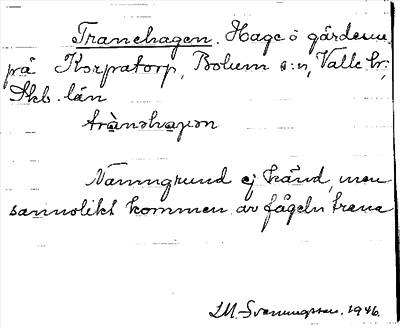 Tranehagen. Hage ö gårdarna
på Korpatorp, Bolum s:n, Valle hd,
Skb. län
trànəhagən
Namngrund ej känd, men
sannolikt kommen av fågeln trana
LM. Svanungsson. 1946.